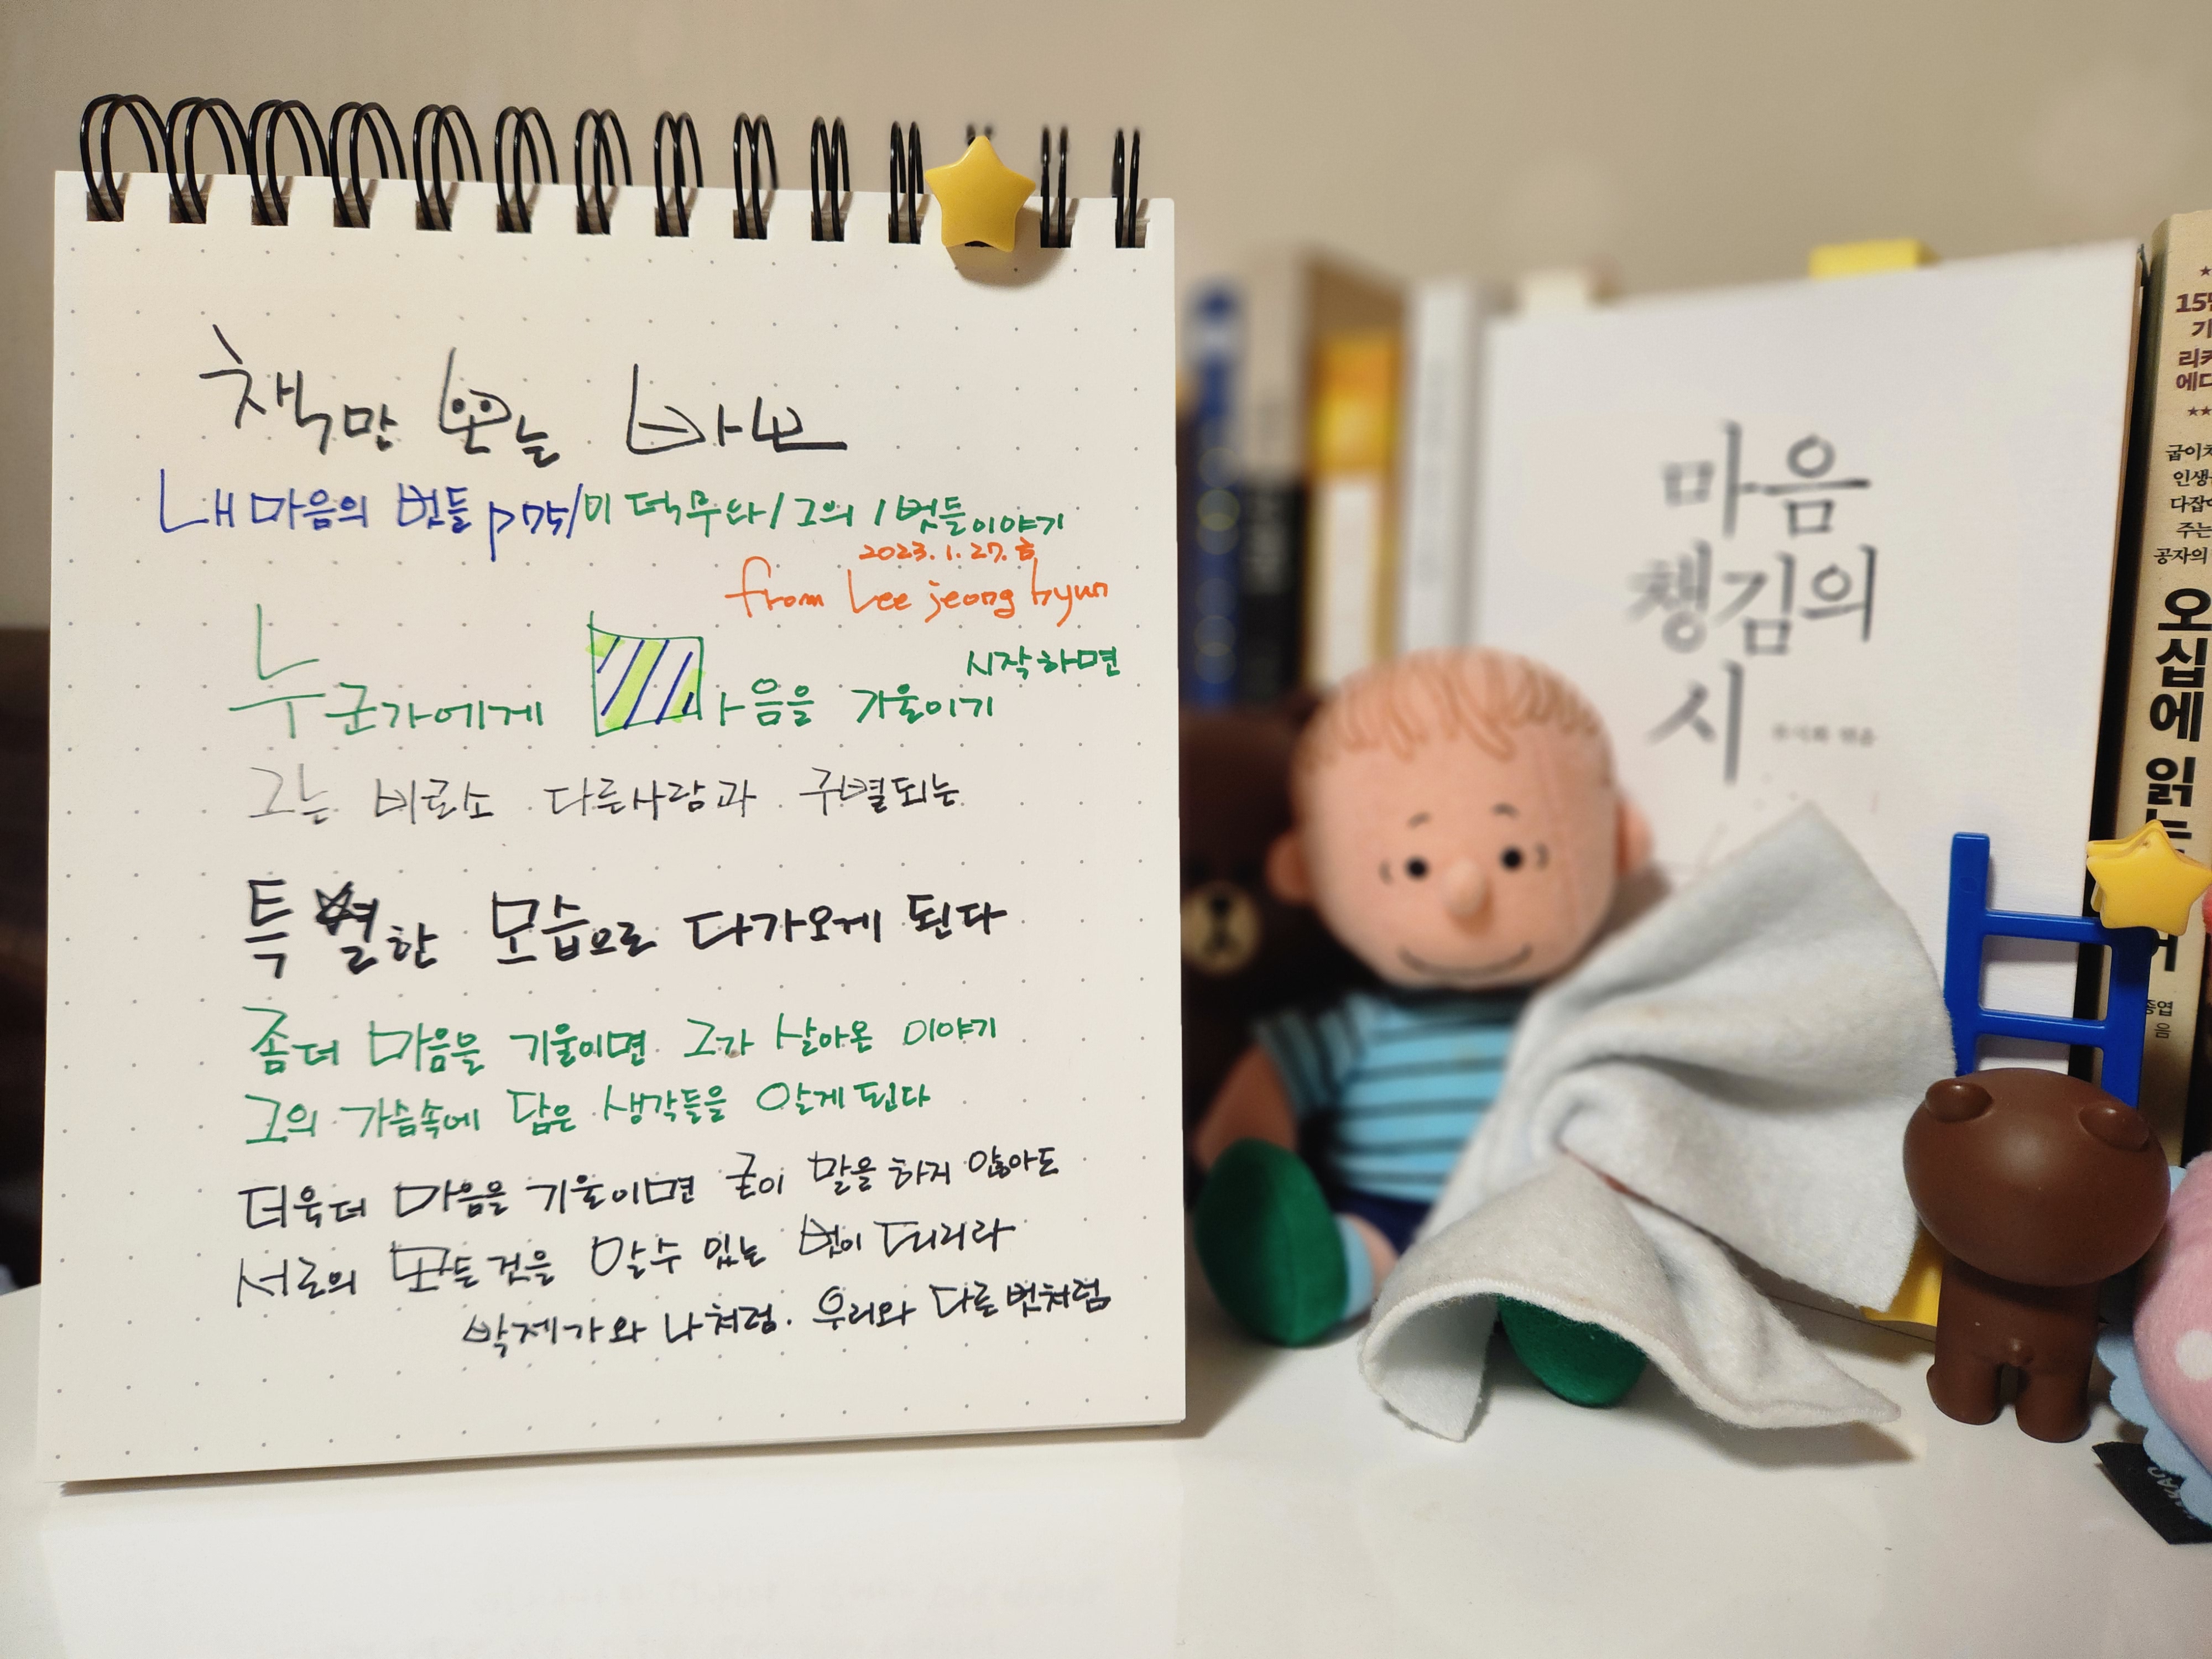 책만 보는 바보
내 마음의 벗들 p75/이덕무와/그의/벗들이야기
2023.1.27.금
from Lee jeong hyun
누군가에게 마음을 기울이기 시작하면
그는 비로소 다른사람과 구별되는
특별한 모습으로 다가오게 된다
좀더 마음을 기울이면 그가 살아온 이야기
그의 가슴속에 담은 생각들을 알게 된다
더욱더 마음을 기울이면 굳이 말을 하지 않아도
서로의 모든 것을 알 수 있는 벗이 되리라
박제가와 나처럼. 우리와 다른 벗처럼
마음
챙김의
시
류시화 엮음
15만
기
리커
에디
굽이치
인생
다잡아
주는
공자의
오십에 읽는
종엽
음